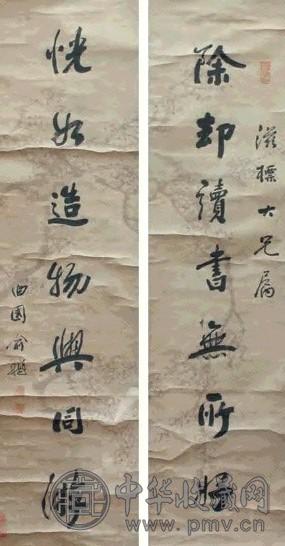 滋標大兄屬
除却讀書無所
恍如造物與同游
曲園俞樾
中华收藏网
www.pmv.cn